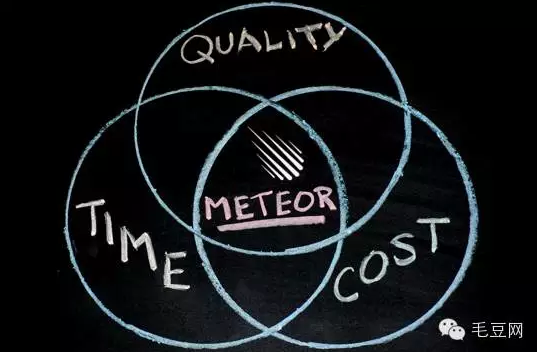 QUALITY
METEOR
TIME
COST
毛豆网